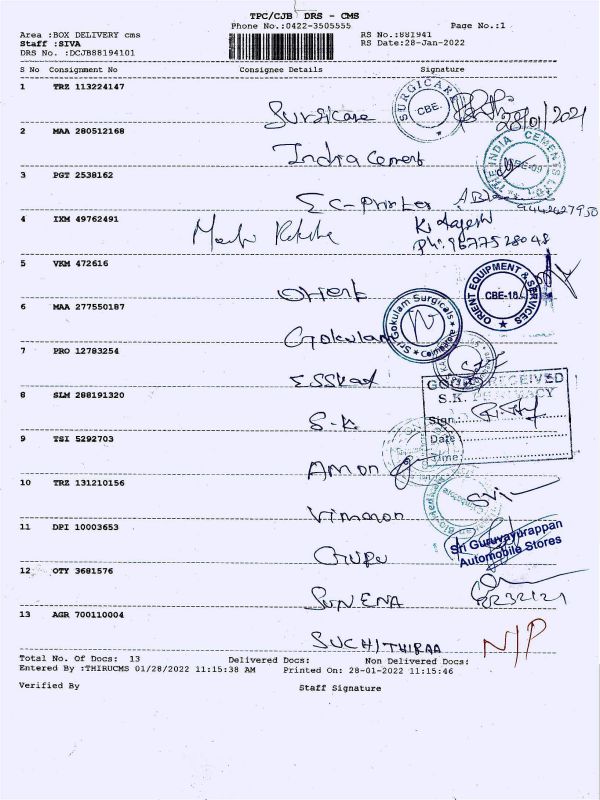 TPC/CJB DRS - CMS
Phone No.:0422-3505555 Page No.:1
Area :BOX DELIVERY cms RS No.:881941
Staff :SIVA RS Date:28-Jan-2022
DRS No. :DCJB88194101
S No Consignment No Consignee Details Signature
1 TRZ 113224147
Surgicare SURGICARE CBE 28/01/2021
2 MAA 280512168
India Cement THE INDIA CEMENTS LTD
3 PGT 2538162
EC-Printer 9442427950
4 IXM 49762491
K. Rajesh
Ph: 9877528048
5 VKM 472616
Orient ORIENT EQUIPMENT & SERVICES CBE-18
6 MAA 277550187
Gokulam Sri Gokulam Surgicals Coimbatore
7 PRO 12783254
GOODS RECEIVED
8 SLM 288191320
S.K. PHARMACY
S.K Sign:
Date
9 TSI 5292703
Time
Amon
10 TRZ 131210156
11 DPI 10003653
Guru Sri Guruvayurappan
Automobile Stores
12 OTY 3681576
SUNENA
13 AGR 700110004
SUCHITHRAA N/P
Total No. Of Docs: 13 Delivered Docs: Non Delivered Docs:
Entered By :THIRUCMS 01/28/2022 11:15:38 AM Printed On: 28-01-2022 11:15:46
Verified By Staff Signature